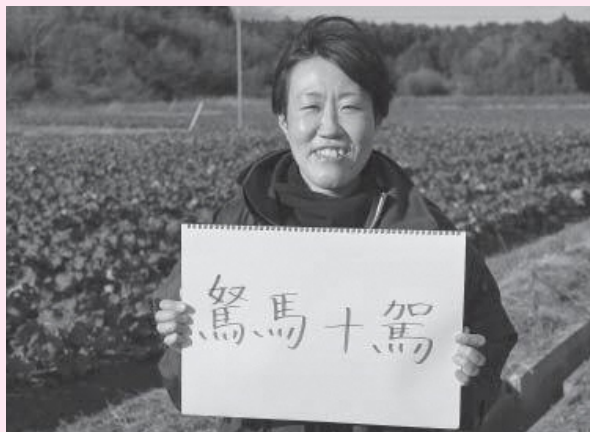 駑馬十駕